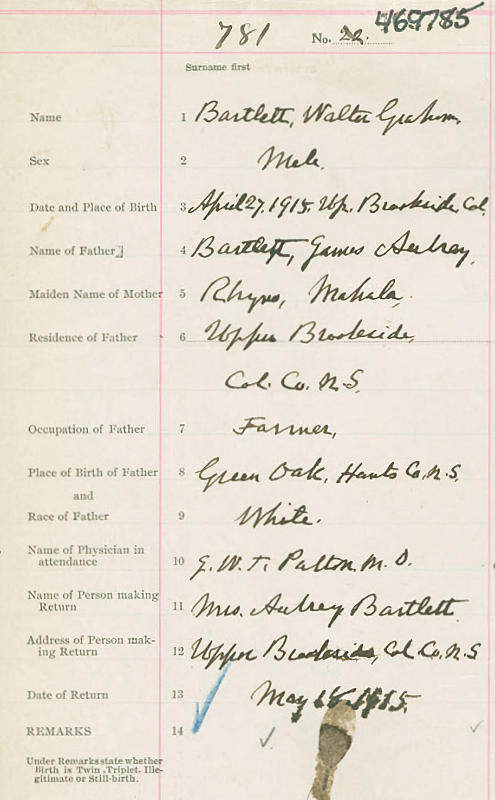 469785
781 No. 22.
Surname first
Name 1 Bartlett, Walter Graham,
Sex 2 Male.
Date and Place of Birth 3 April 27, 1915. Up. Brookside, Col.
Name of Father 4 Bartlett, James Aubrey,
Maiden Name of Mother 5 Rhyno, Mahala,
Residence of Father 6 Upper Brookside,
Col. Co. N.S.
Occupation of Father 7 Farmer,
Place of Birth of Father 8 Green Oak, Hants Co. N.S.
and
Race of Father 9 White.
Name of Physician in
attendance 10 G. W. T. Patton, M. D.
Name of Person making
Return 11 Mrs. Aubrey Bartlett
Address of Person mak-
ing Return 12 Upper Brookside, Col Co. N.S
Date of Return 13 May 1915.
REMARKS 14
Under Remarks state whether
Birth is Twin, Triplet, Ille-
gitimate or Still-birth.